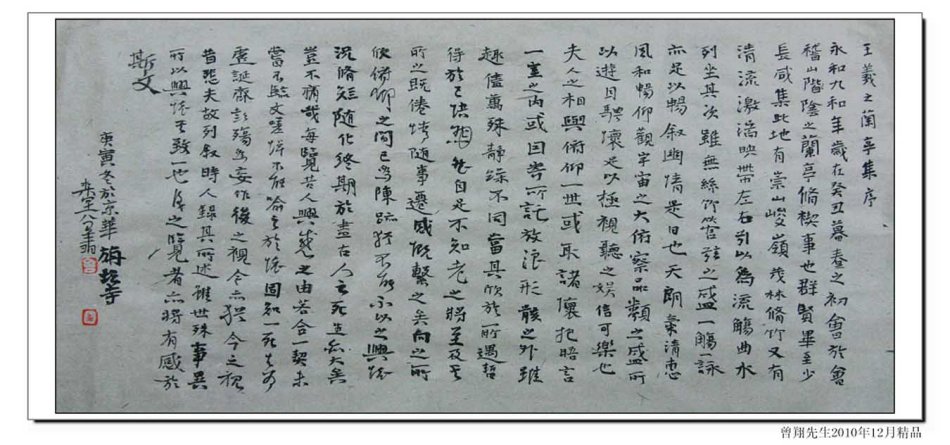 王羲之蘭亭集序
永和九和年歲在癸丑暮春之初會於會
稽山階陰之蘭亭脩禊事也群賢畢至少
長咸集此地有崇山峻嶺茂林脩竹又有
清流激湍映帶左右引以為流觴曲水
列坐其次雖無絲竹管弦之盛一觴一詠
亦足以暢叙幽情是日也天朗氣清惠
風和暢仰觀宇宙之大俯察品類之盛所
以遊目騁懷足以極視聽之娛信可樂也
夫人之相與俯仰一世或取諸懷抱晤言
一室之內或因寄所託放浪形骸之外雖
趣萬殊靜躁不同當其欣於所遇暫
得於己快然自足不知老之將至及其
所之既倦情隨事遷感慨繫之矣向之所
欣俯仰之間已為陳跡猶不能不以之興懷
況脩短隨化終期於盡古人云死生亦大矣
豈不痛哉每覽昔人興感之由若合一契未
嘗不臨文嗟悼不能喻之於懷固知一死生為
虛誕齊彭殤為妄作後之視今亦猶今之視
昔悲夫故列叙時人錄其所述雖世殊事異
所以興懷其致一也後之覽者亦將有感於
斯文
庚寅冬於京華
曾翔先生2010年12月精品